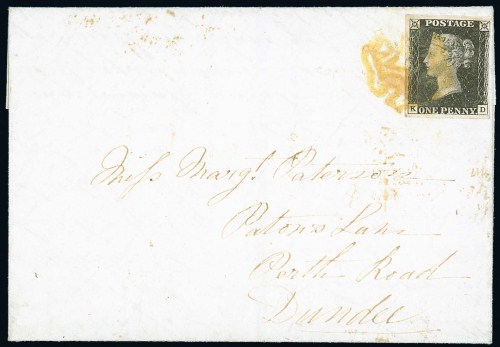 POSTAGE
K D
ONE PENNY
Miss Margt. Paterson
Paton's Lane
Perth Road
Dundee